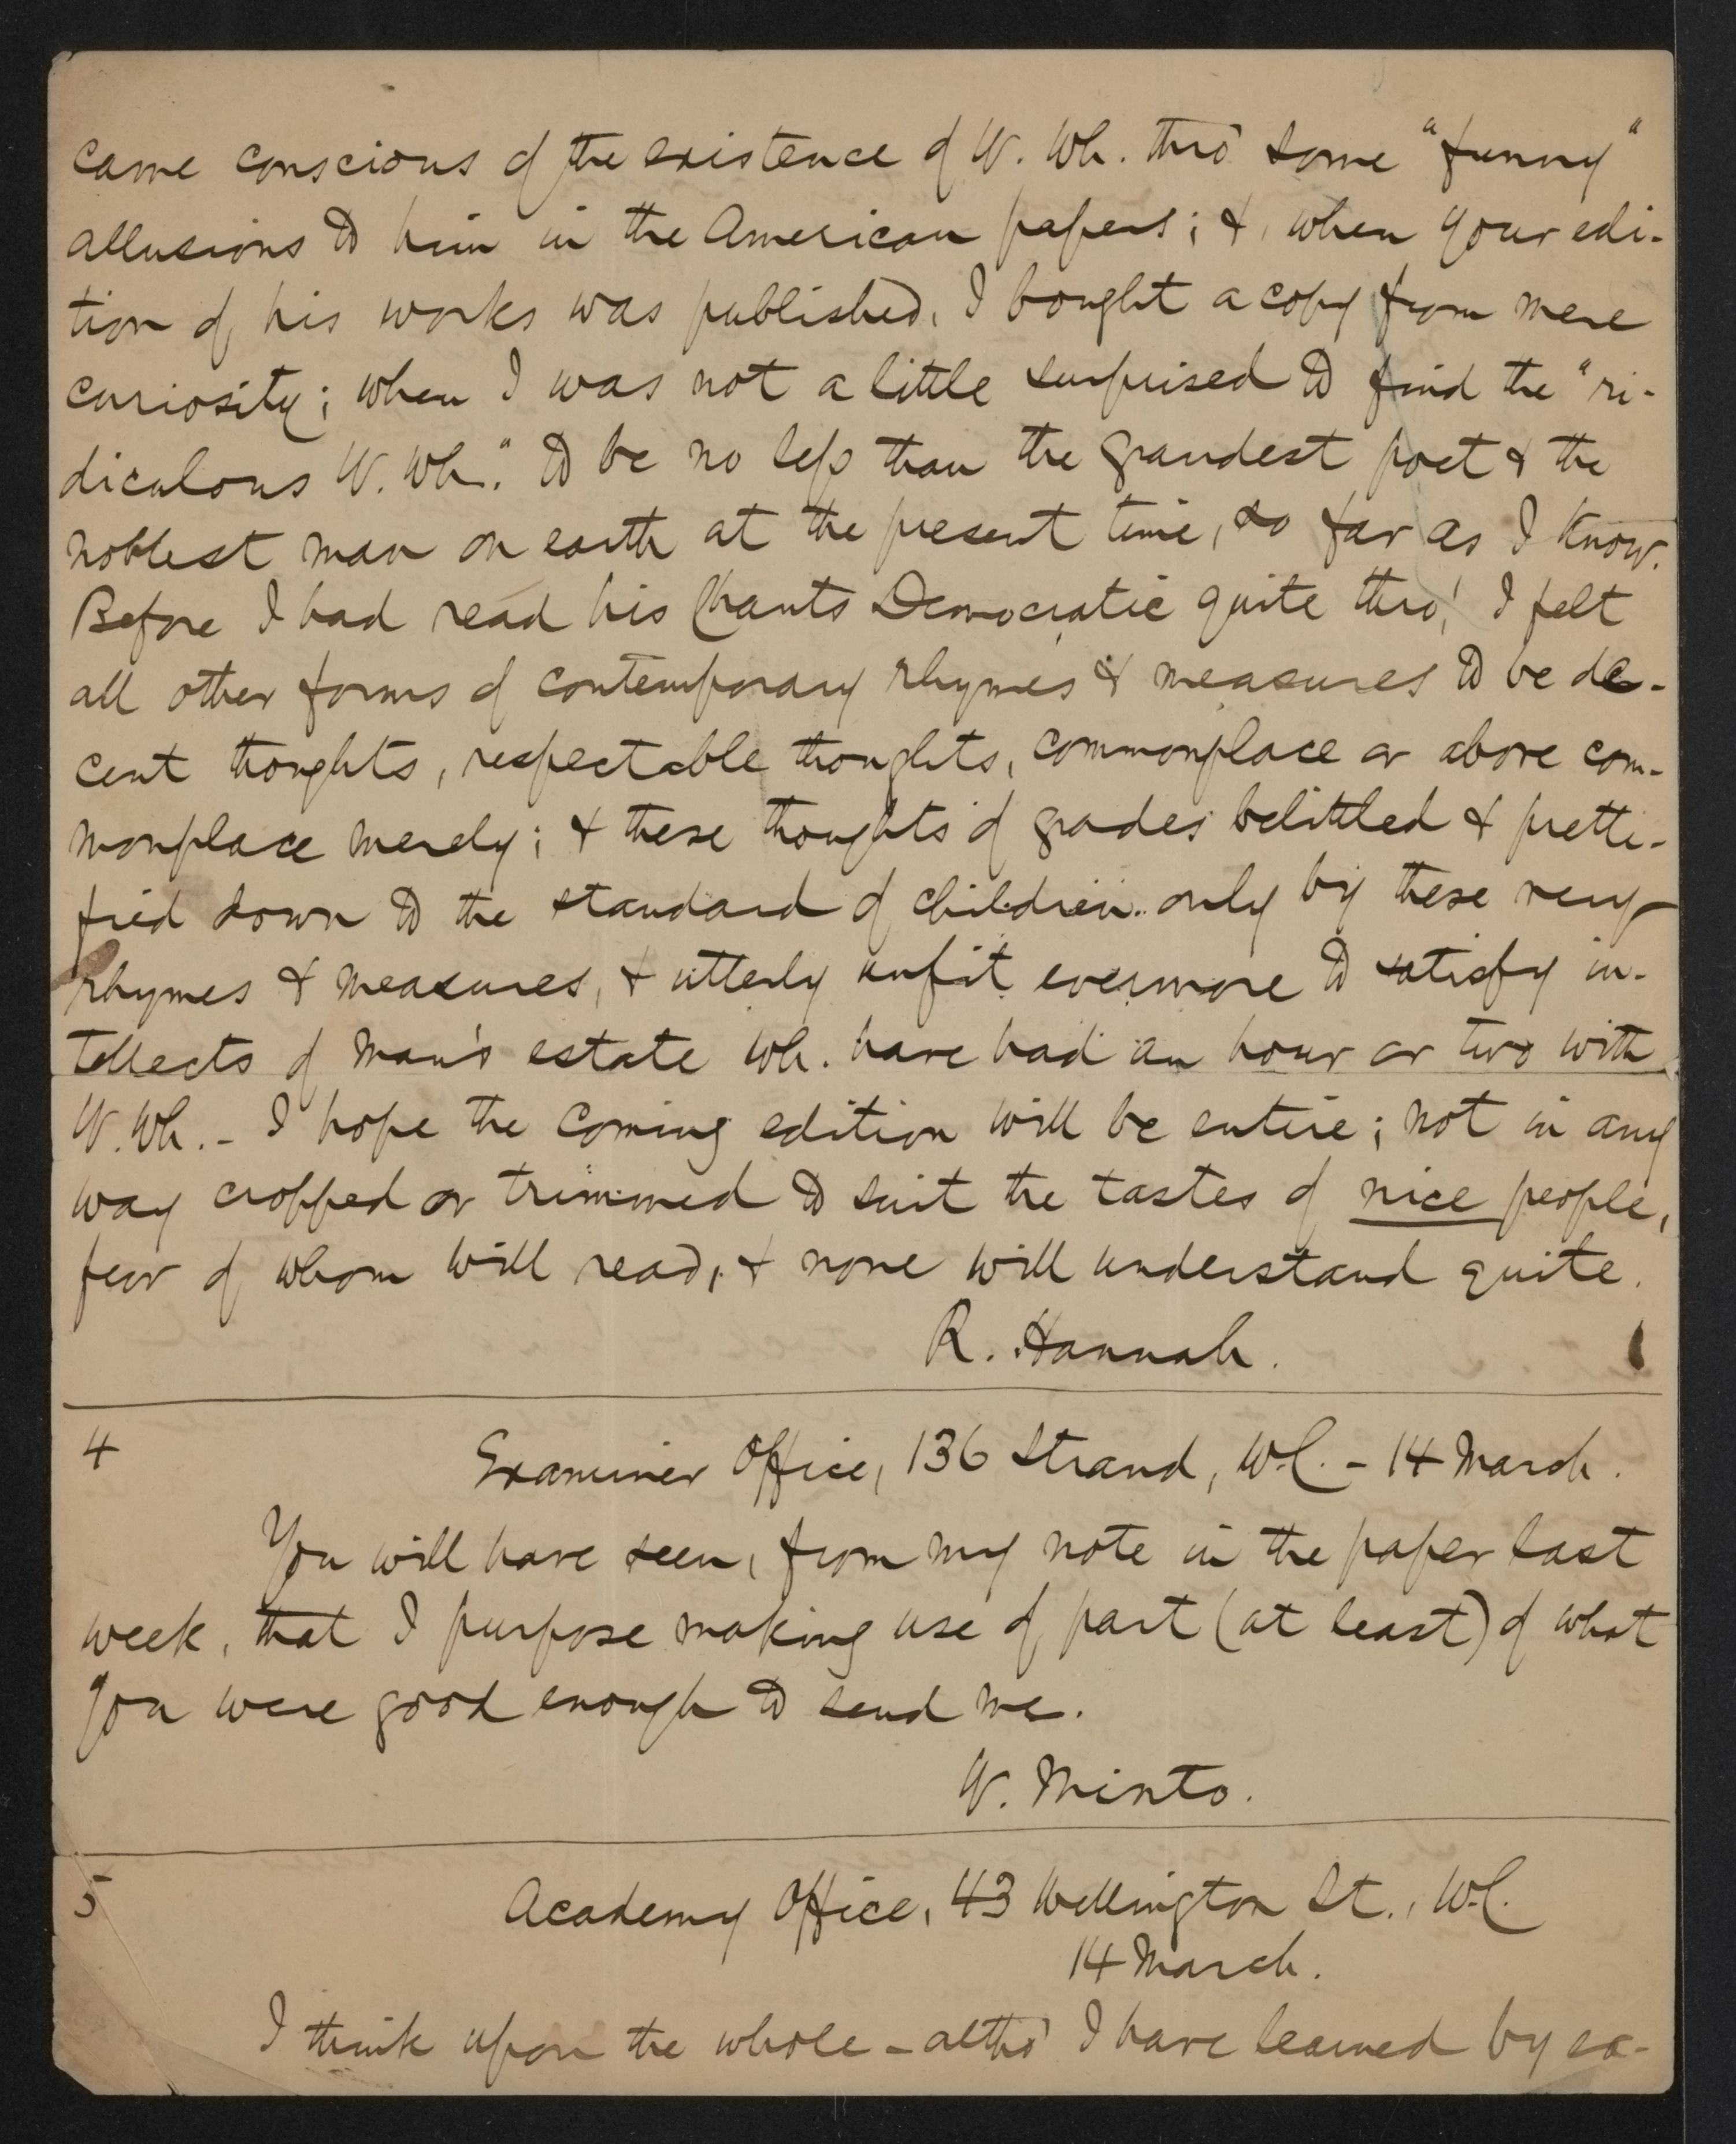 came conscious of the existence of W. Wh. thro' some "funny"
allusions to him in the American papers; &, when your edi-
tion of his works was published, I bought a copy from mere
curiosity; when I was not a little surprised to find the "ri-
diculous W. Wh." to be no less than the grandest poet & the
noblest man on earth at the present time, so far as I know.
Before I had read his Chants Democratic quite thro', I felt
all other forms of contemporary rhymes & measures to be de-
cent thoughts, respectable thoughts, commonplace or above com-
monplace merely; & these thoughts of grades belittled & pretti-
fied down to the standard of children only by these very
rhymes & measures, & utterly unfit evermore to satisfy in-
tellects of man's estate wh. have had an hour or two with
W. Wh. - I hope the coming edition will be entire; not in any
way cropped or trimmed to suit the tastes of nice people,
few of whom will read, & none will understand quite.
R. Hannah.
4
Examiner Office, 136 Strand, W.C. - 14 March.
You will have seen, from my note in the paper last
week, that I purpose making use of part (at least) of what
you were good enough to send me.
W. Minto.
5
Academy Office, 43 Wellington St., W.C.
14 March.
I think upon the whole - altho' I have learned by ex-